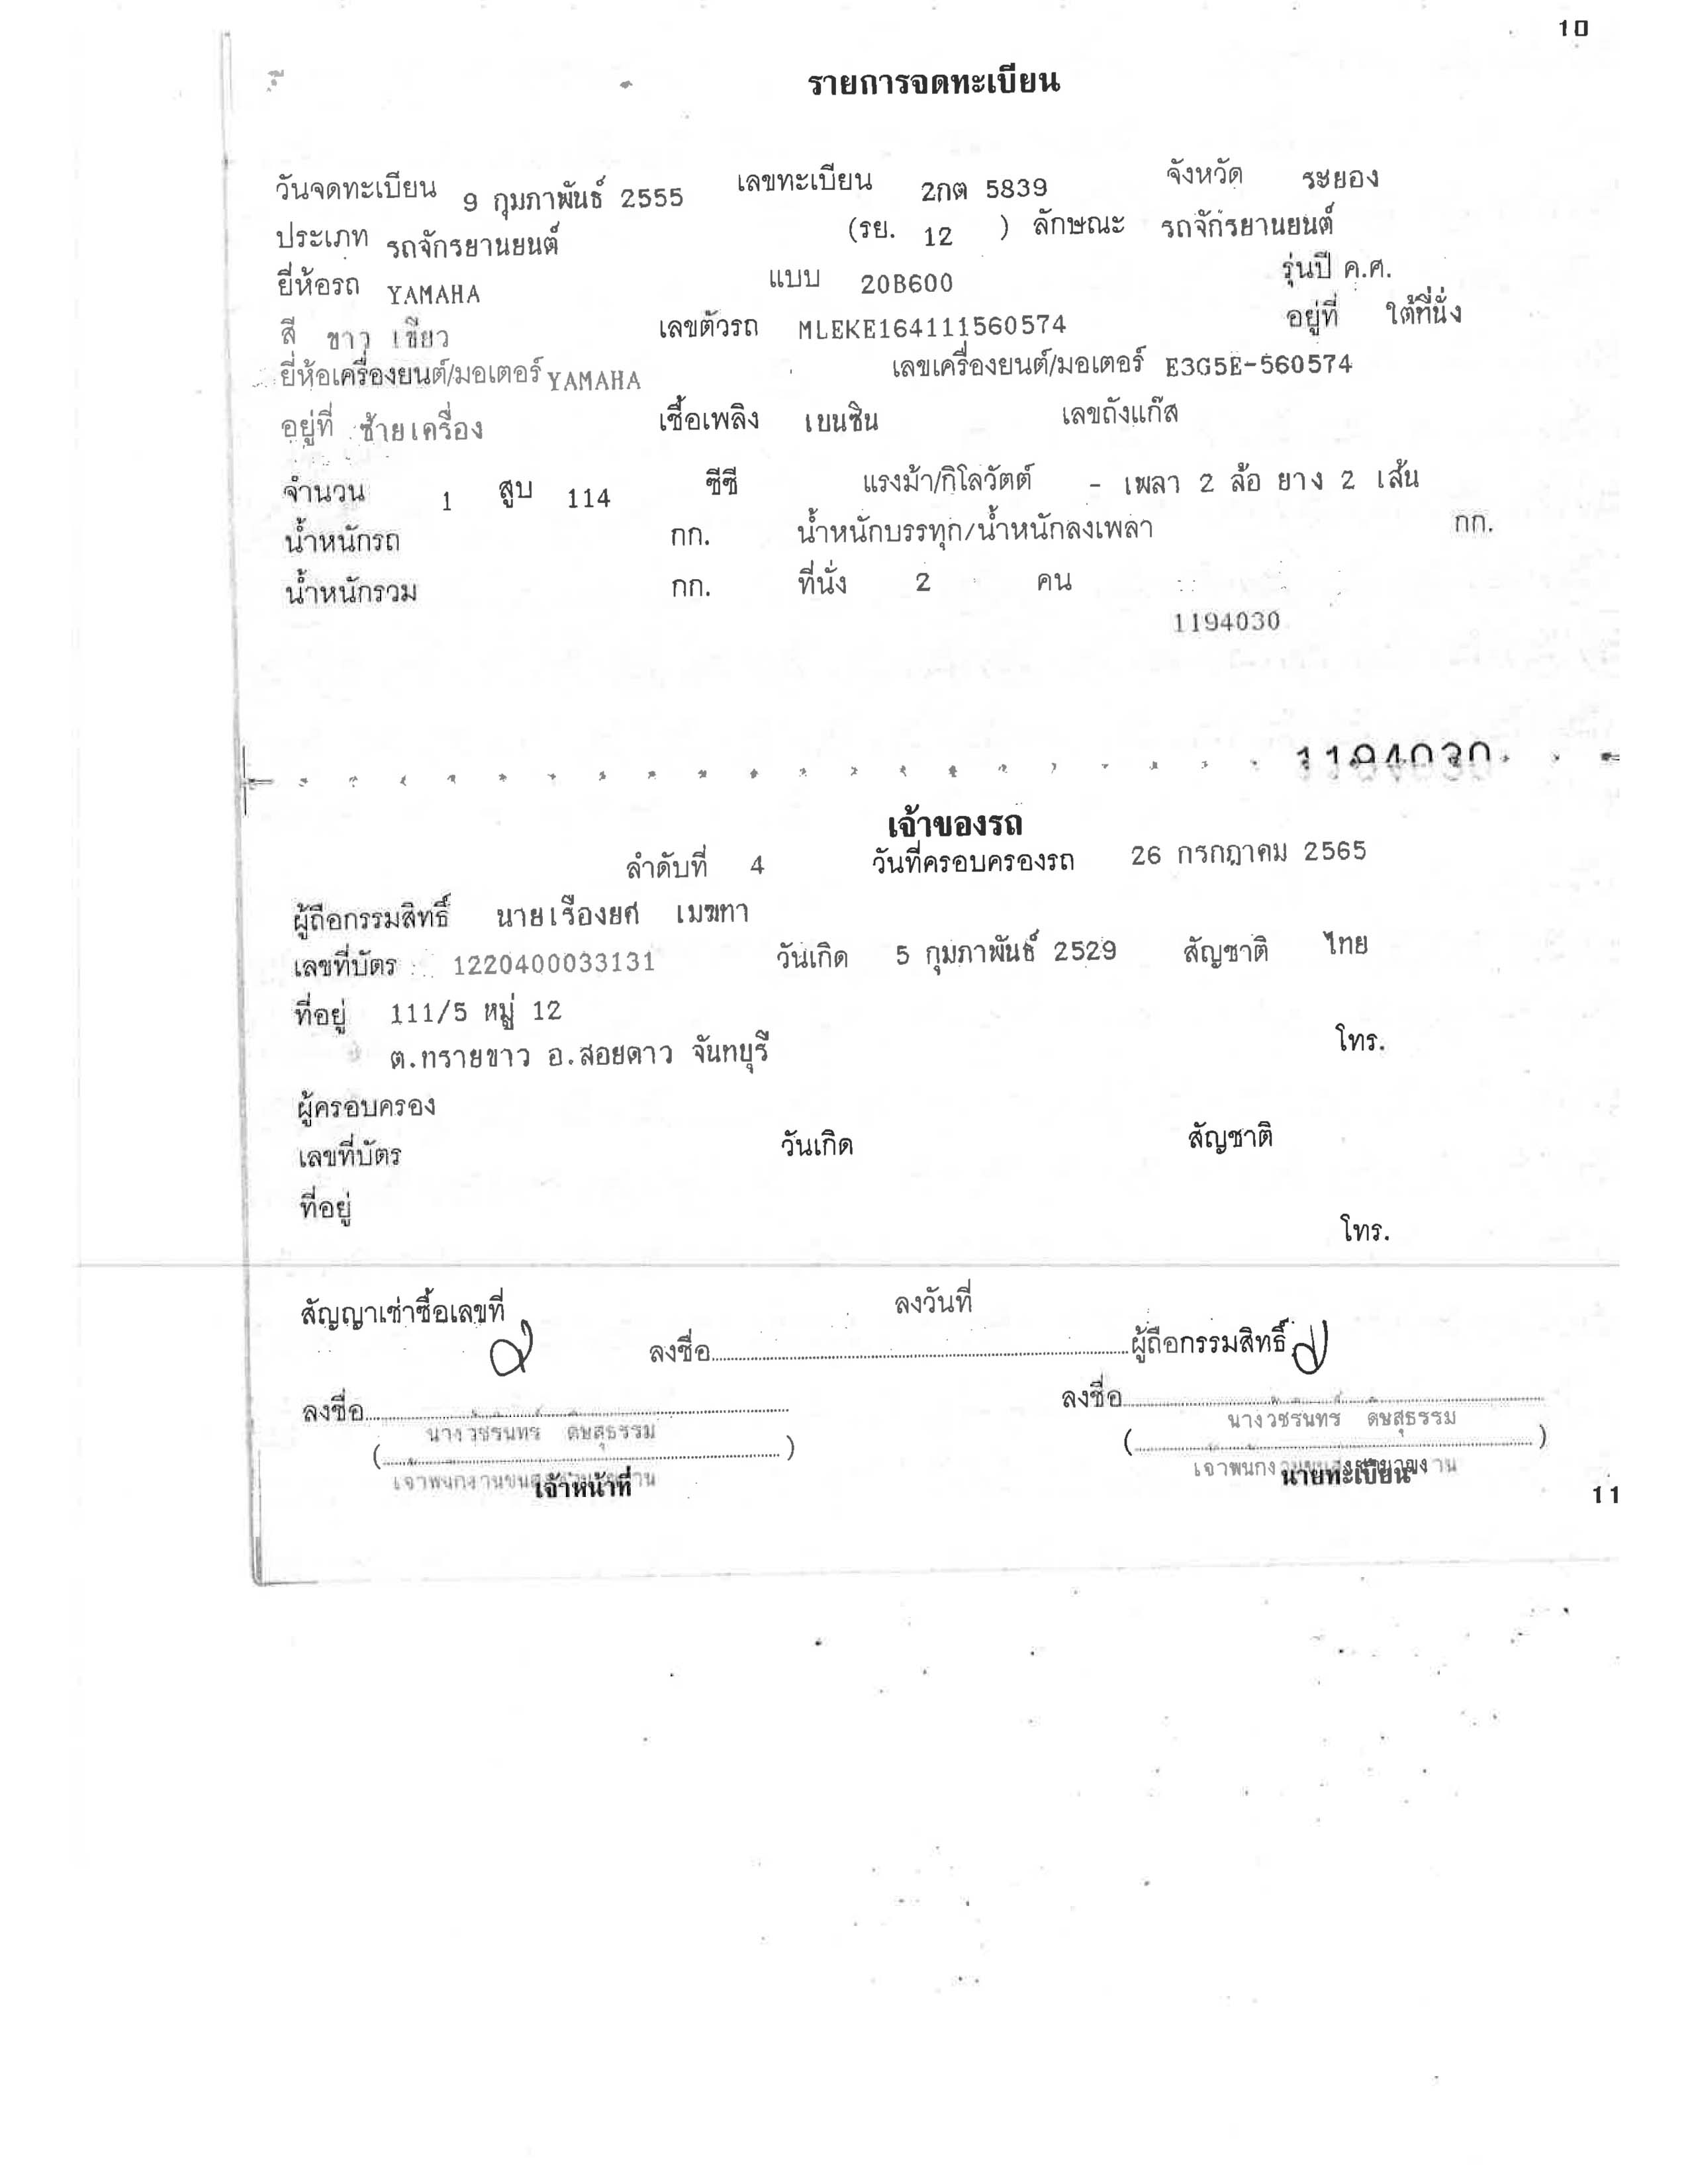 10
รายการจดทะเบียน
วันจดทะเบียน 9 กุมภาพันธ์ 2555 เลขทะเบียน 2กต 5839 จังหวัด ระยอง
ประเภท รถจักรยานยนต์ (รย. 12 ) ลักษณะ รถจักรยานยนต์
ยี่ห้อรถ YAMAHA แบบ 20B600 รุ่นปี ค.ศ.
สี ขาว เขียว เลขตัวรถ MLEKE164111560574 อยู่ที่ ใต้ที่นั่ง
ยี่ห้อเครื่องยนต์/มอเตอร์ YAMAHA เลขเครื่องยนต์/มอเตอร์ E3G5E-560574
อยู่ที่ ซ้ายเครื่อง เชื้อเพลิง เบนซิน เลขถังแก๊ส
จำนวน 1 สูบ 114 ซีซี แรงม้า/กิโลวัตต์ - เพลา 2 ล้อ ยาง 2 เส้น
น้ำหนักรถ กก. น้ำหนักบรรทุก/น้ำหนักลงเพลา กก.
น้ำหนักรวม กก. ที่นั่ง 2 คน
1194030
1194030
เจ้าของรถ
ลำดับที่ 4 วันที่ครอบครองรถ 26 กรกฎาคม 2565
ผู้ถือกรรมสิทธิ์ นายเรืองยศ เมฆทา
เลขที่บัตร 1220400033131 วันเกิด 5 กุมภาพันธ์ 2529 สัญชาติ ไทย
ที่อยู่ 111/5 หมู่ 12
ต.ทรายขาว อ.สอยดาว จันทบุรี โทร.
ผู้ครอบครอง
เลขที่บัตร วันเกิด สัญชาติ
ที่อยู่
โทร.
สัญญาเช่าซื้อเลขที่ ลงวันที่
ลงชื่อ ผู้ถือกรรมสิทธิ์
ลงชื่อ ลงชื่อ
( ) ( )
เจ้าหน้าที่ นายทะเบียน
11